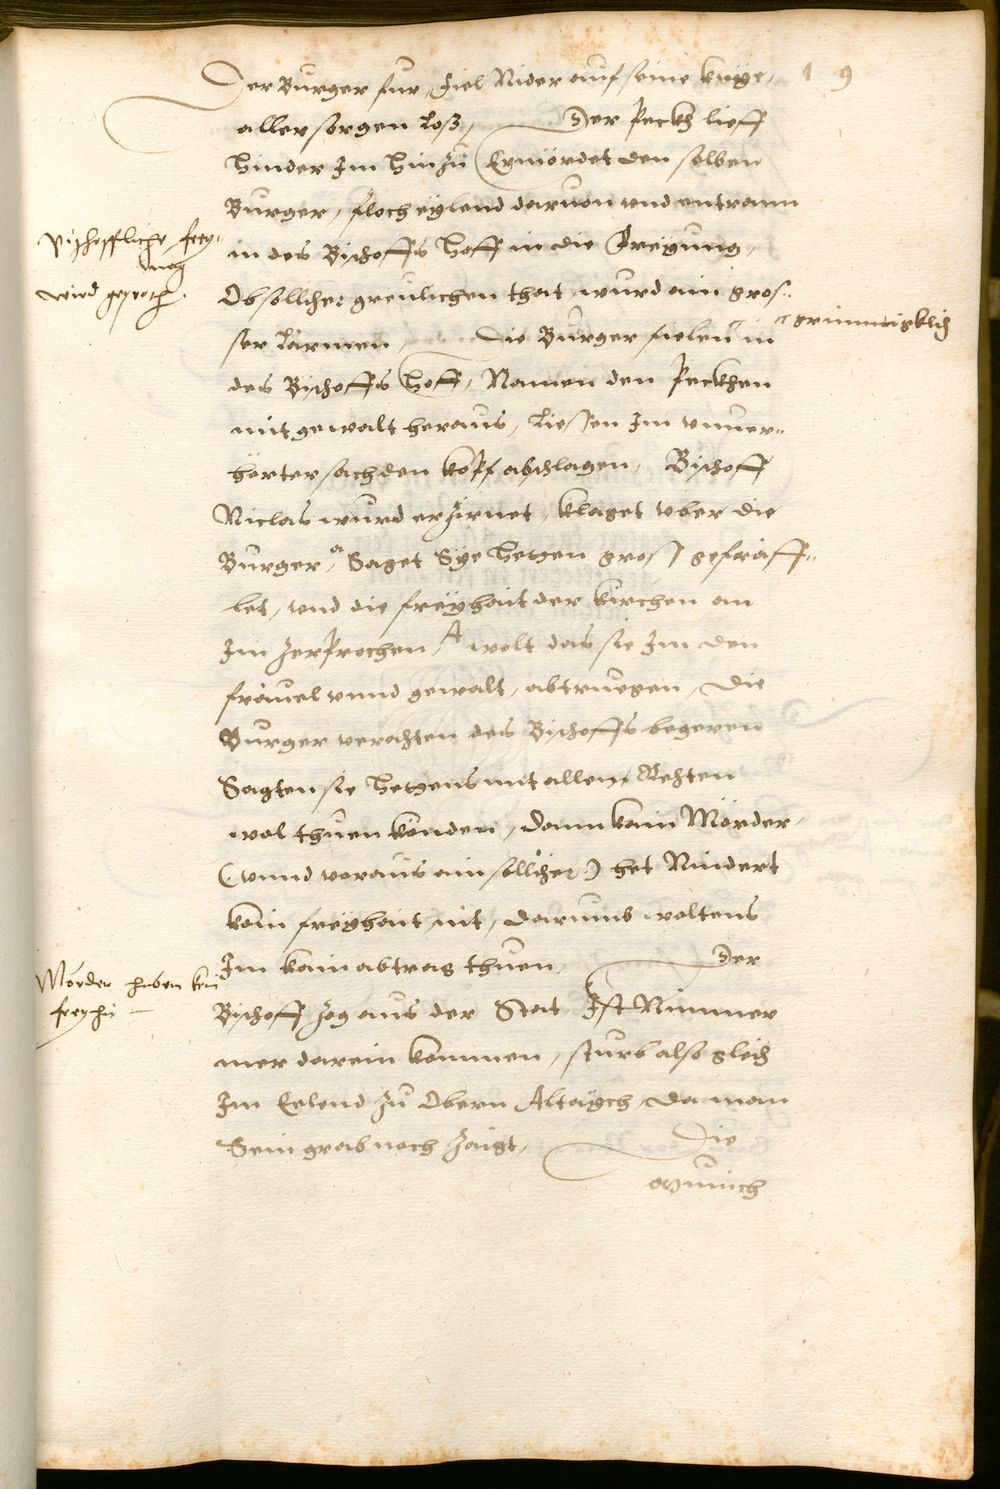 19
Der Burger fur, fiel Nider auf seine knÿe,
aller sorgen loß, Der Peckh lieff
hinder Im hinzu Ermördet den selben
Burger, floch eÿlend daruon vnd entrann
in des Bischoffs hoff in die Freÿung,
Ob sollicher greulichen that, wurd ain gros=
ser Lärmen, Die Burger fielen in
des Bischoffs hoff, Namen den Peckhen
mit gewalt heraus, liessen Im vnuer=
hörter sach den kopf abschlagen, Bischoff
Niclas wurd erzürnet, klaget vber die
Burger, Saget Sÿe hetzen gross gefräff=
let, vnd die freÿhait der kirchen an
Im zerprochen, A wolt das sie Im den
fräuel vnnd gewalt, abtruegen, Die
Burger verachten des Bischoffs begeren
Sagten sie hetens mit allem Rechten
wol thuen künden, dann kain Mörder,
(vnnd voraus ain sollicher) het Nindert
kain freÿhait nit, darumb woltens
Im kain abtrag thuen, Der
Bischoff zog aus der Stat, Ist Nimmer
mer darein kommen, sturb also gleich
Im Eelend zu Obern Altaÿch, da man
Sein grab noch zaigt, Die
Münich
Bischoffliche frey=
ung
wird
grimmigklich
Mörder haben kein